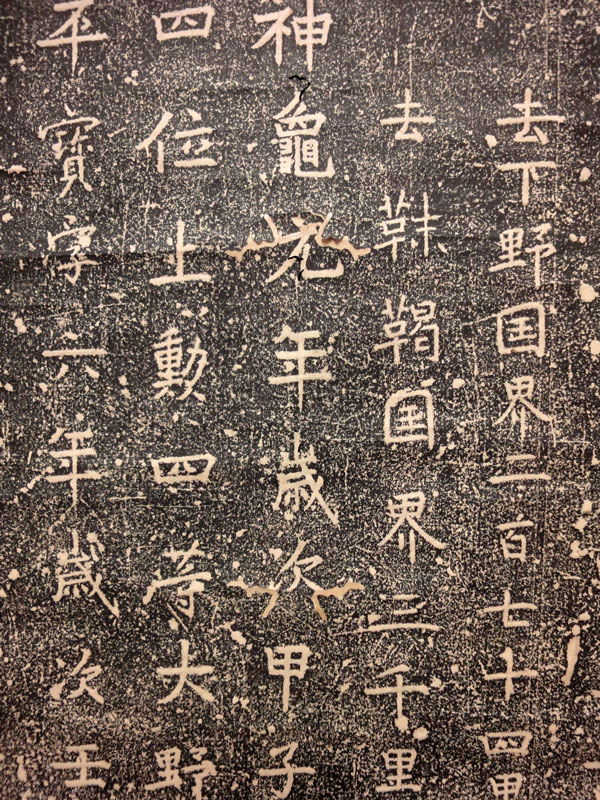 去下野国界二百七十四里
去靺鞨国界三千里
神龜元年歳次甲子
四位上勳四等大野
平寳字六年歳次壬